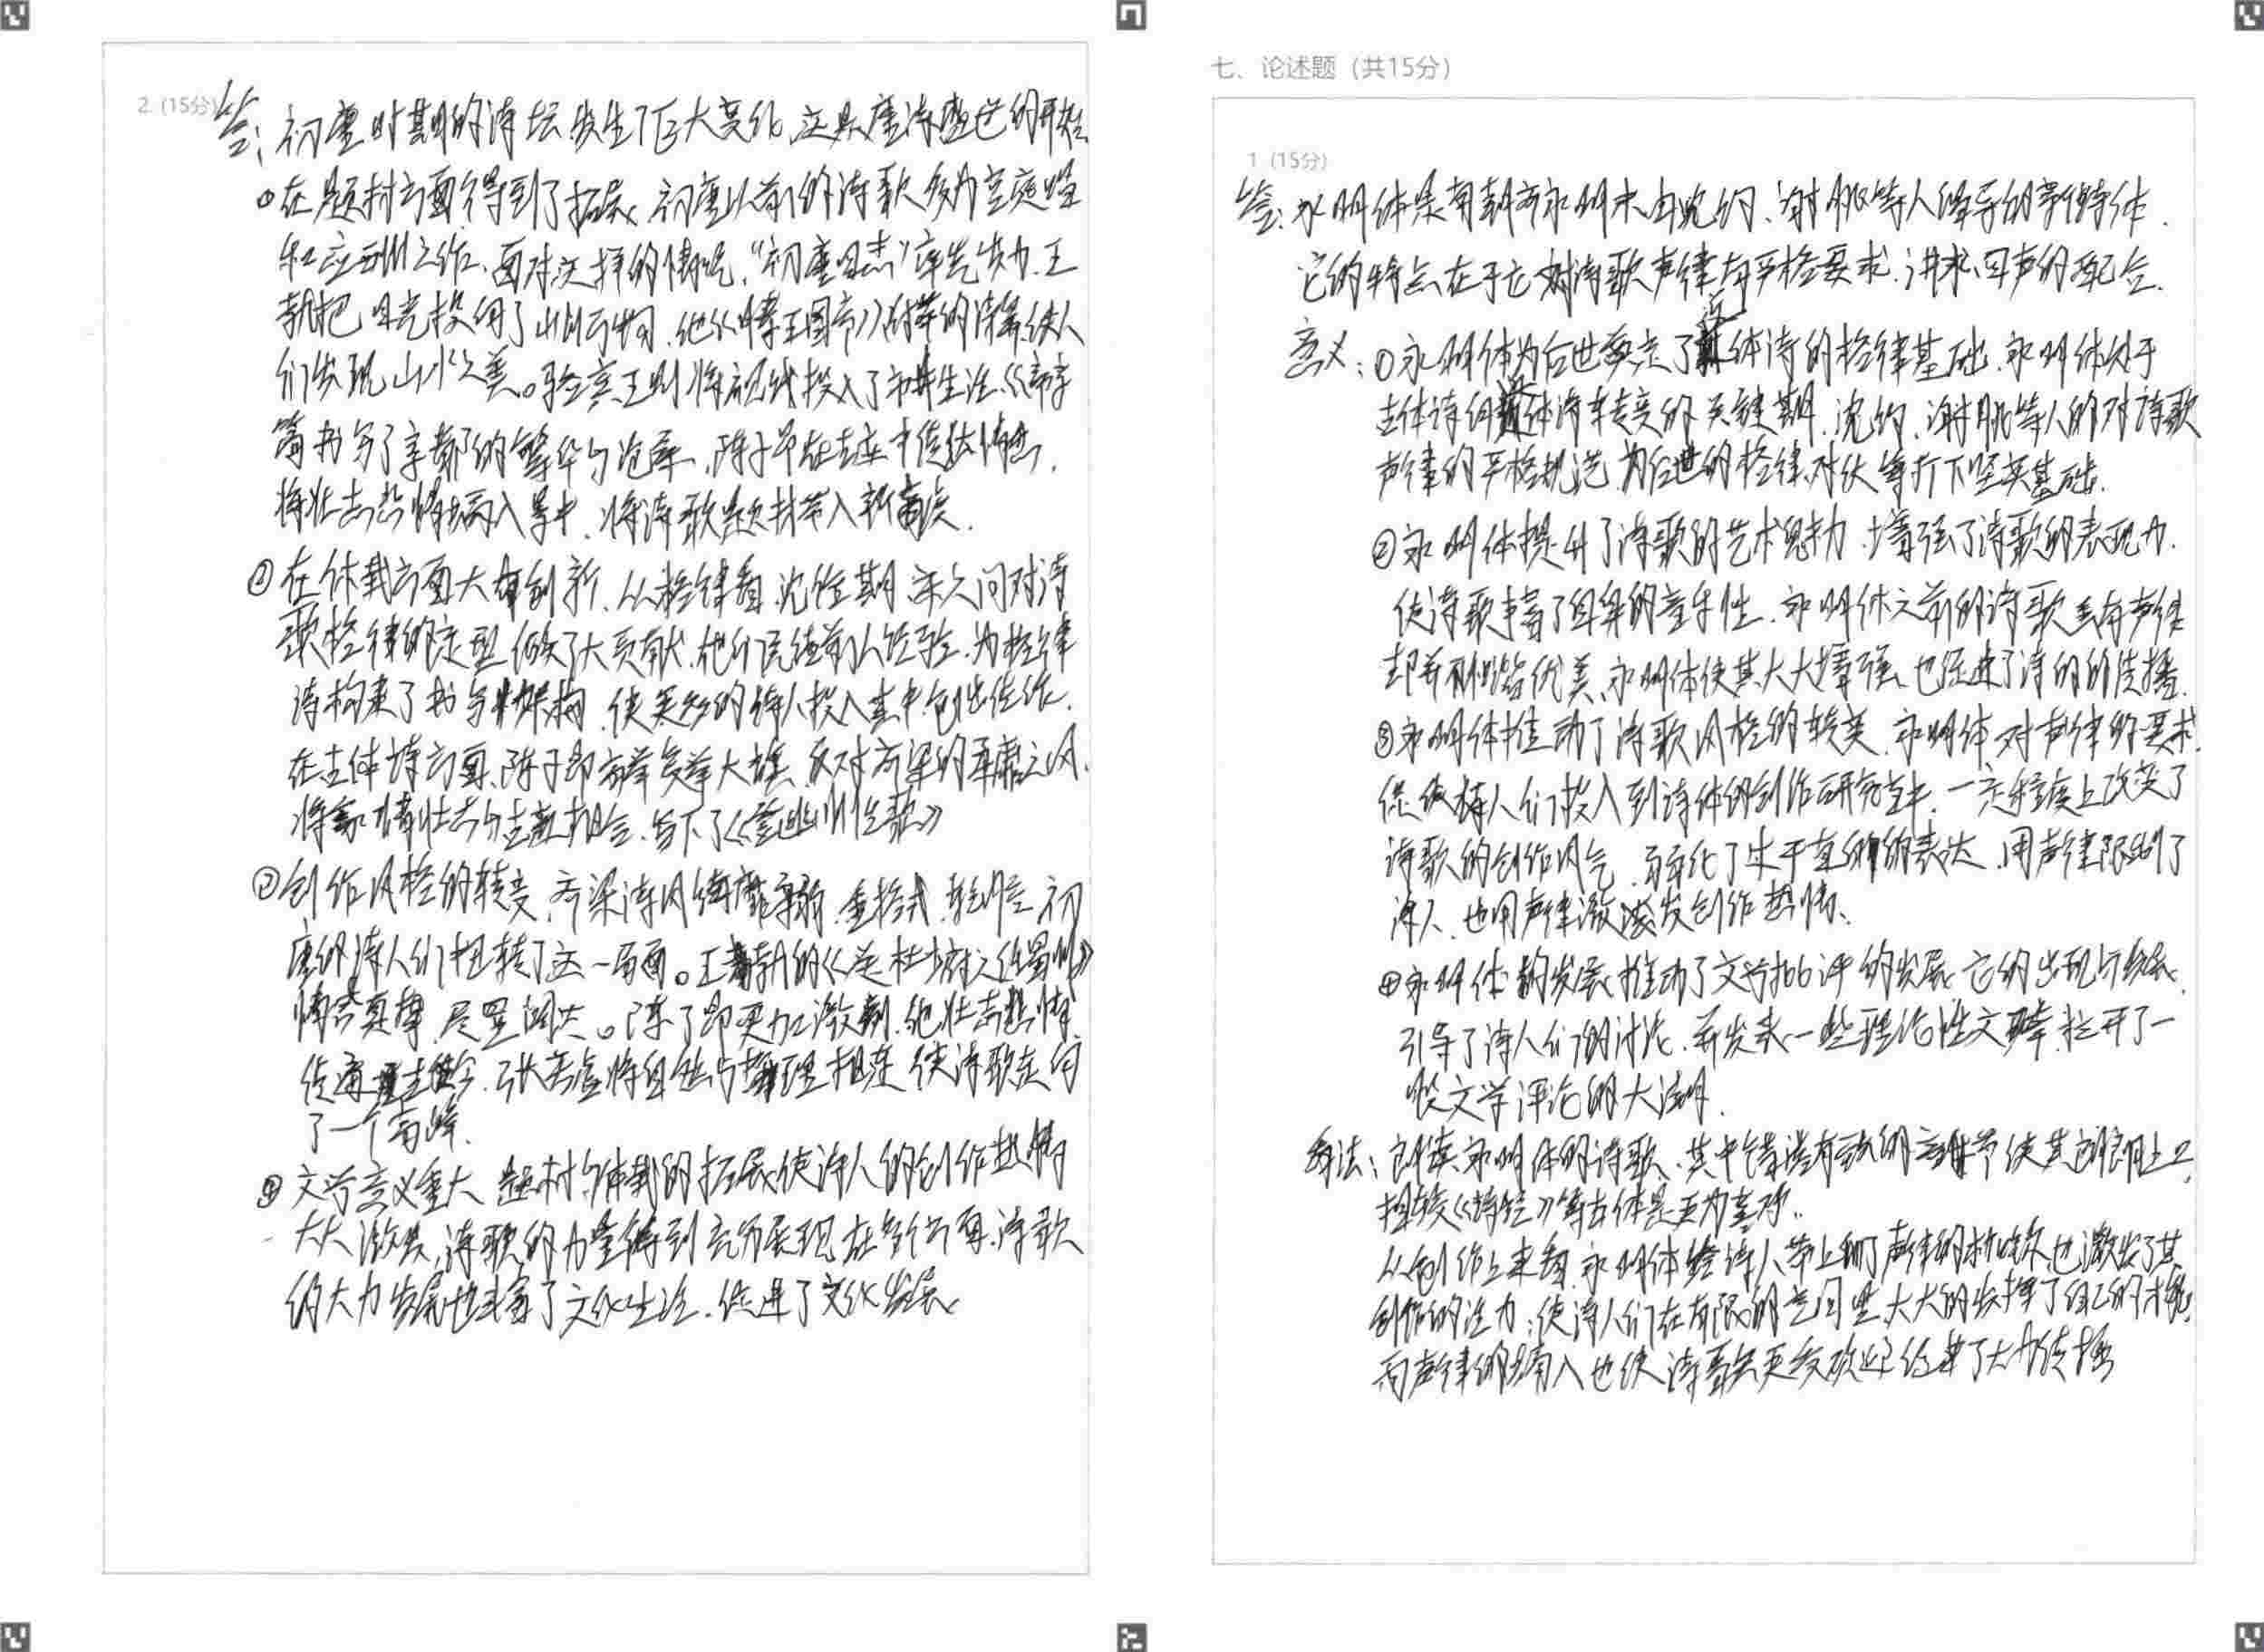 2. (15分)
答：初唐时期的诗坛发生了巨大变化，这是唐诗盛世的开始
①在题材方面得到了拓展，初唐以前的诗歌多为宫廷唱
和应酬之作，面对这样的情况，“初唐四杰”率先发力，王
勃把目光投向了山川万物，他《滕王阁序》附带的诗篇使人
们发现山水之美。骆宾王则将视线投入了市井生活，《帝京
篇》书写了京都的繁华与沧桑，陈子昂在古意中传达情思，
将壮志悲情寓入景中，将诗歌题材带入新高度.
②在体裁方面大有创新，从格律看，沈佺期、宋之问对诗
歌格律的定型做了大贡献，他们总结前人经验，为格律
诗构建了书写架构，使更多的诗人投入其中，创出佳作.
在古体诗方面，陈子昂高举复举大旗，反对齐梁的靡靡之风，
将豪情壮志与古意相合，写下了《登幽州台歌》
③创作风格的转变，齐梁诗风绮靡，重格式，轻情，初
唐的诗人们扭转了这一局面。王勃的《送杜少府之任蜀州》
情答真挚，尽显阔达。陈子昂更加激荡，把壮志悲情
传遍古今，张若虚将自然与哲理相连，使诗歌走向
了一个高峰.
④文学意义重大，题材与体裁的拓展使诗人的创作热情
大大激发，诗歌的力量得到充分展现，在各个方面，诗歌
的大力发展也丰富了文化生活，促进了文化发展.
七、论述题（共15分）
1 (15分)
答：永明体是南朝齐永明末由沈约、谢朓等人倡导的新诗体.
它的特点在于它对诗歌声律有严格要求，讲求四声的配合.
意义：①永明体为后世奠定了近体诗的格律基础，永明体处于
古体诗向近体诗转变的关键期，沈约、谢朓等人的对诗歌
声律的严格规范，为后世的格律、对仗等打下坚实基础.
②永明体提升了诗歌的艺术魅力，增强了诗歌的表现力.
使诗歌丰富了自身的音乐性，永明体之前的诗歌虽有声律
却并不和谐优美，永明体使其大大增强，也促进了诗的的传播.
③永明体推动了诗歌风格的转变，永明体对声律的要求，
促使诗人们投入到诗体的创作研究中，一定程度上改变了
诗歌的创作风气，弱化了过于直的表达，用声律限制了
诗人，也用声律激发创作热情.
④永明体的发展推动了文学批评的发展，它的出现与发展，
引导了诗人们的讨论，并发表一些理论性文章，拉开了一
段文学评论的大幕.
看法：朗读永明体的诗歌，其中错落有致的音节使其朗朗上口，
相较《诗经》等古体是更为丰净.
从创作上来看，永明体给诗人带上了声律的枷锁，也激发了其
创作的活力，使诗人们在有限的空间里大大的发挥了自己的才能，
而声律的加入也使诗歌更受欢迎，迎来了大力传播